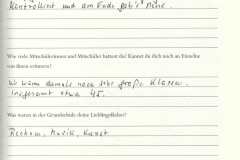 Kontrolliert und am Ende gab's Noten.
Wie viele Mitschülerinnen und Mitschüler hattest du? Kannst du dich noch an Einzelne
von ihnen erinnern?
Wir waren damals noch sehr große Klassen.
Insgesamt etwa 45.
Was waren in der Grundschule deine Lieblingsfächer?
Rechnen, Musik, Kunst